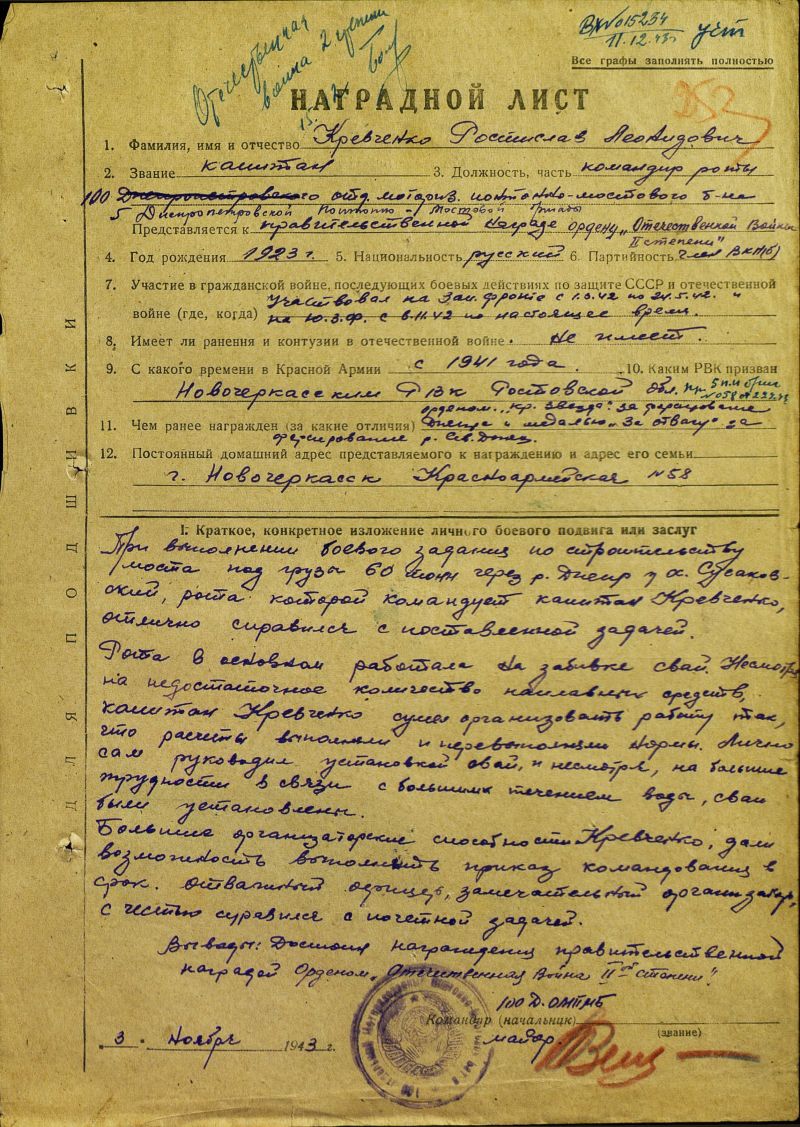 Отечественная
война 2 степени
Вх№015234
11.12.43г
Все графы заполнять полностью
НАГРАДНОЙ ЛИСТ
1. Фамилия, имя и отчество Кревченко Ростислав Леонидович
2. Звание капитан 3. Должность, часть командир роты
100 Днепропетровского отд. моториз. понтонно-мостового б-на
5 Днепропетровской Понтонно-Мостовой бригады
Представляется к правительственной награде ордену „Отечественной Войны
II степени"
4. Год рождения 1923 г. 5. Национальность русский 6. Партийность член ВКП(б)
7. Участие в гражданской войне, последующих боевых действиях по защите СССР и отечественной
войне (где, когда) Участвовал на Зап. фронте с 1.3.42 по 24.5.42. и
на Ю.З.Ф. с 8.11.42 по настоящее время.
8. Имеет ли ранения и контузии в отечественной войне Не имеет.
9. С какого времени в Красной Армии с 1941 года. 10. Каким РВК призван
Новочеркасским РВК Ростовской обл.
орденом „Кр. Звезда" за форсирование
11. Чем ранее награжден (за какие отличия) Днепра и медалью „За отвагу" за
форсирование р. Сев. Донец.
12. Постоянный домашний адрес представляемого к награждению и адрес его семьи
г. Новочеркасск Красноармейская №58
I. Краткое, конкретное изложение личного боевого подвига или заслуг
При выполнении боевого задания по строительству
моста под грузы 60 тонн через р. Днепр у х. Сусаков-
ский, рота которой командует капитан Кревченко,
отлично справился с поставленной задачей.
Рота в основном работала на забивке свай. Несмотря
на недостаточное количество наплавных средств,
капитан Кревченко сумел организовать работу так,
что расчеты выполняли и перевыполняли нормы. Лично
сам руководил установкой свай, и несмотря, на большие
трудности в связи с большим течением воды, сваи
были установлены.
Большие организаторские способности Кревченко, дали
возможность выполнить приказ командования в
срок. Отважный офицер, замечательный организатор,
с честью справился с почетной задачей.
Выводы: Достоин награждения правительственной
наградой Орденом „Отечественная Война IIой Степени".
100 Д.ОМПМБ
Командир (начальник)
майор
(звание)
3. Ноября 1943 г.
ДЛЯ ПОДШИВКИ